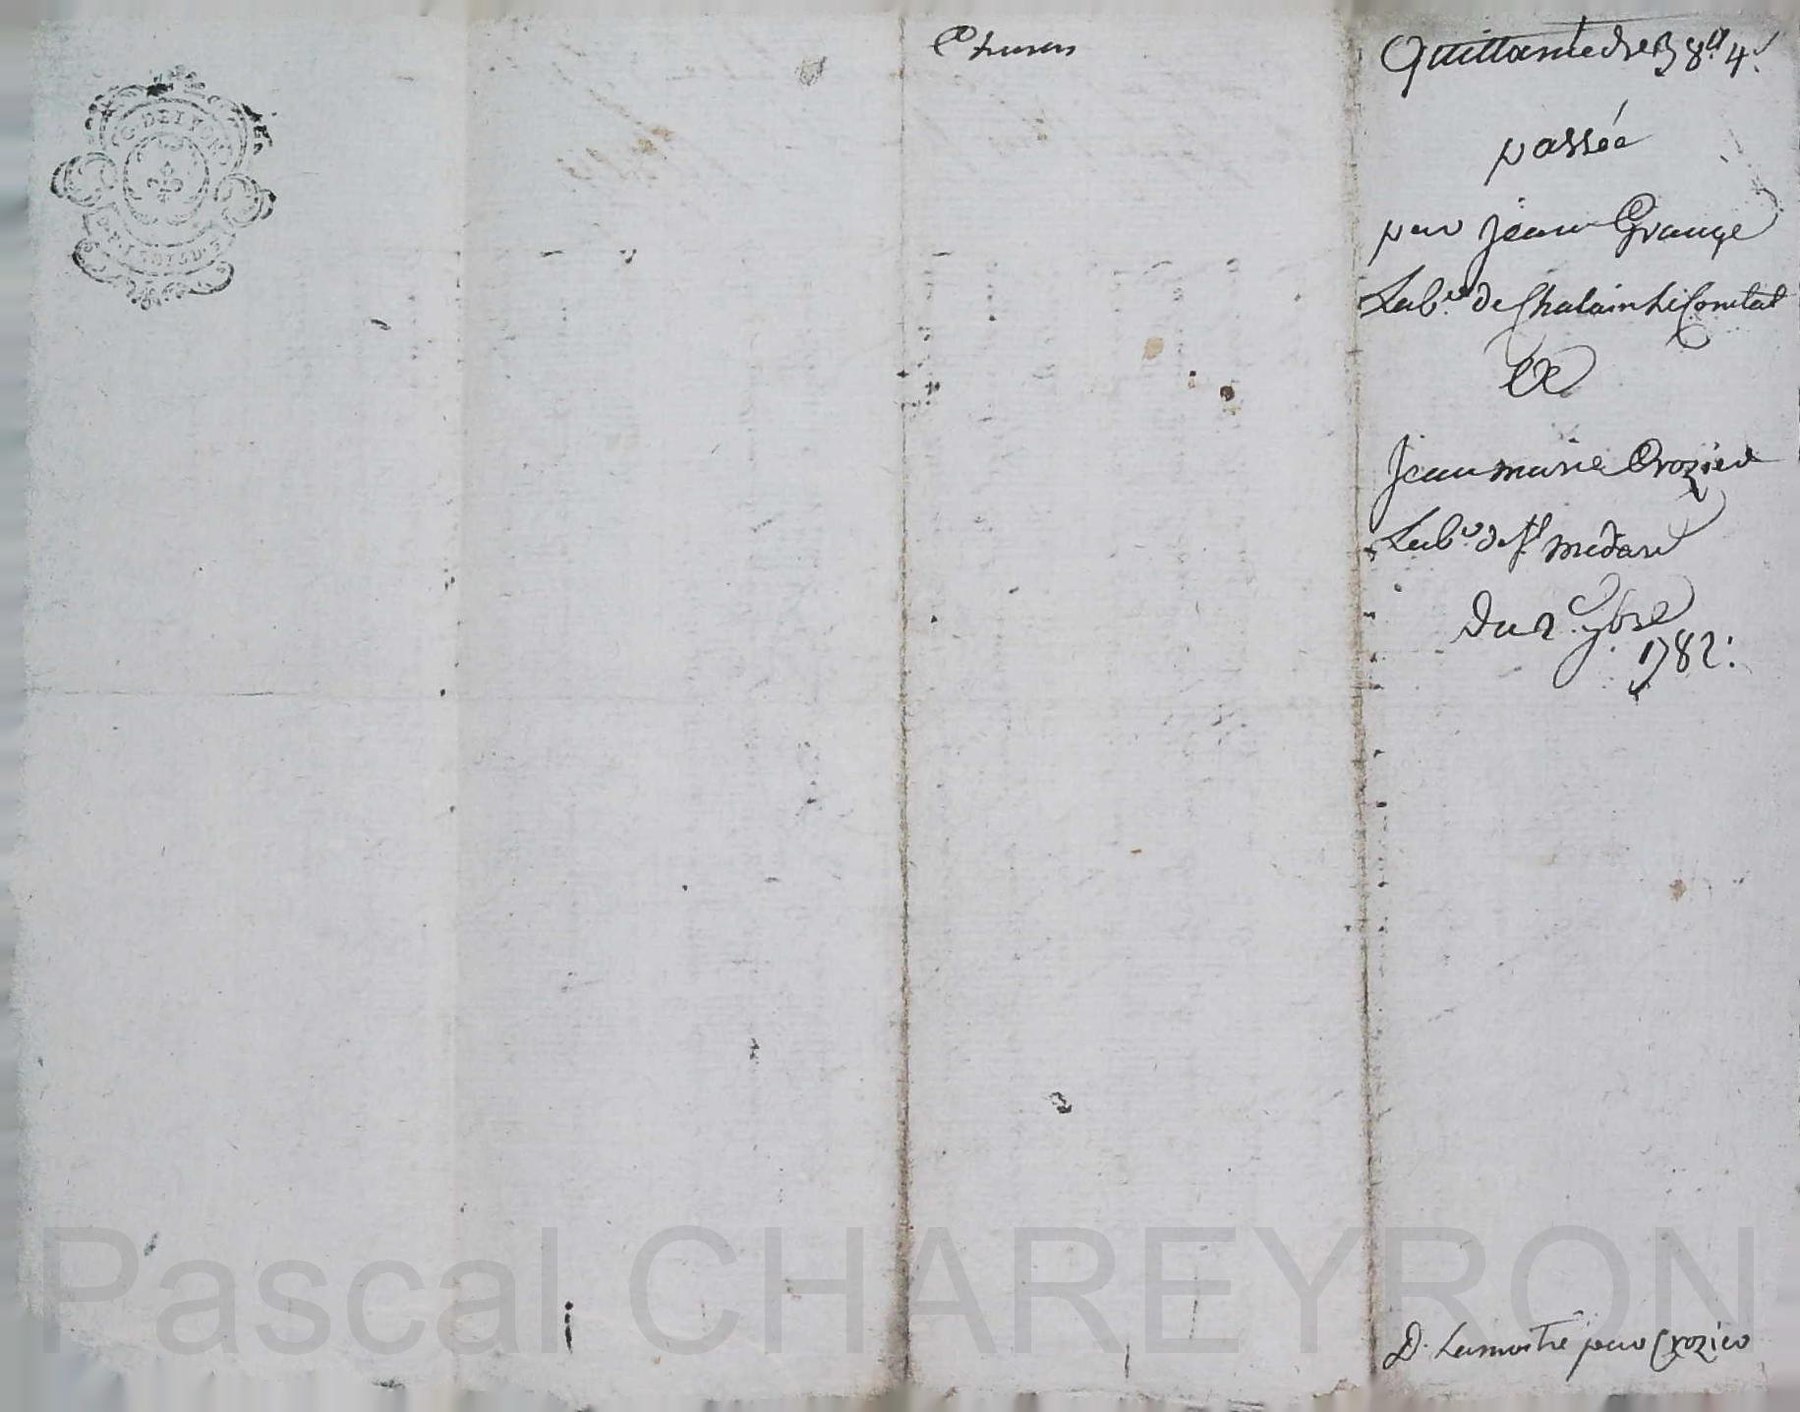 G. DE LYON
Quittance de 38ˡᵗ 4ˢ
passée
par Jean Grange
Labʳ de Chalain Le Comtal
A
Jean marie Crozier
Labʳ de Sᵗ medard
Du 2. 9bre
1782.
D. Lamostre pour Crozier
Pascal CHAREYRON